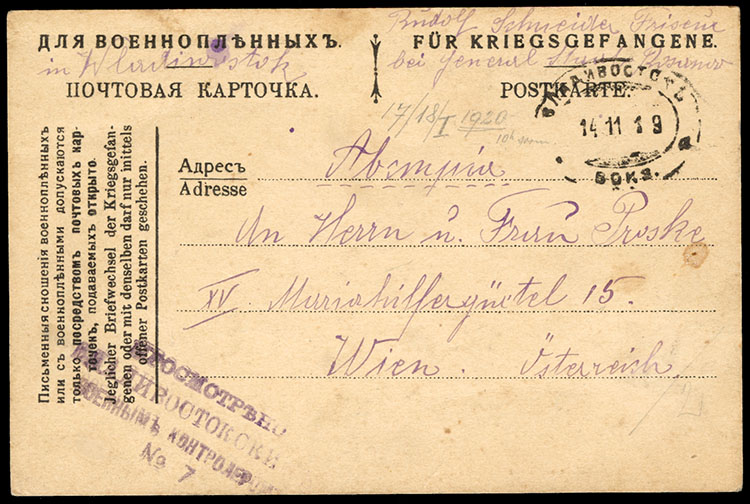 Rudolf Schneider Friseur
ДЛЯ ВОЕННОПЛѢННЫХЪ.
FÜR KRIEGSGEFANGENE.
in Wladiwostok
bei General Rosanow
ПОЧТОВАЯ КАРТОЧКА.
POSTKARTE.
ВЛАДИВОСТОКЪ
14 11 19
ВОКЗ.
17/18/I 1920
Адресъ
Adresse
Австрія
An Herrn u. Frau Proske
XV. Mariahilfergürtel 15.
Wien. Österreich
Письменныя сношенія военноплѣнныхъ
или съ военноплѣнными допускаются
только посредствомъ почтовыхъ кар-
точекъ, подаваемыхъ открыто.
Jeglicher Briefwechsel der Kriegsgefan-
genen oder mit denselben darf nur mittels
offener Postkarten geschehen.
ПРОСМОТРѢНО
ВЛАДИВОСТОКСКИ
ВОЕННЫМЪ КОНТРОЛЕРОМЪ
№ 7